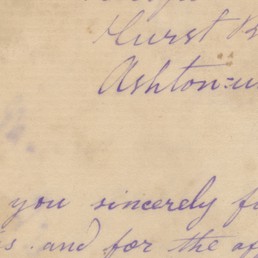 Hurst
Ashton-u
you sincerely f
s. and for the